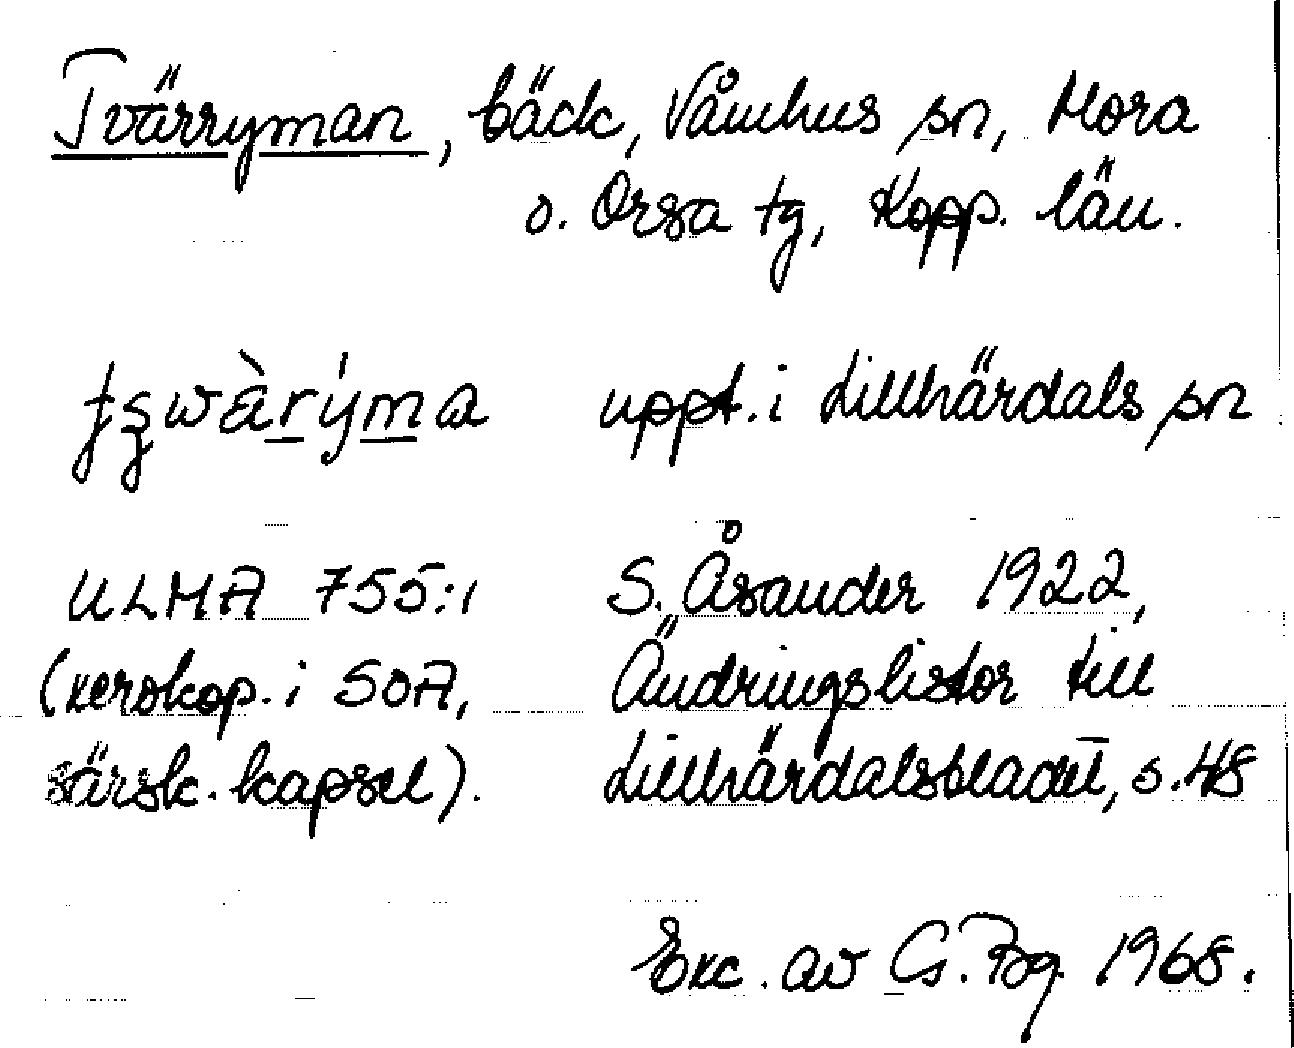 Tvärryman, bäck, Våmhus sn, Mora
o. Orsa tg, Kopp. län.
uppt. i Lillhärdals sn
ULMA 755:1 S. Åsander 1922,
(xerokop. i SOA, Ändringslistor till
särsk. kapsel). Lillhärdalsbladet, s. 48
Exc. av G. Bg 1968.